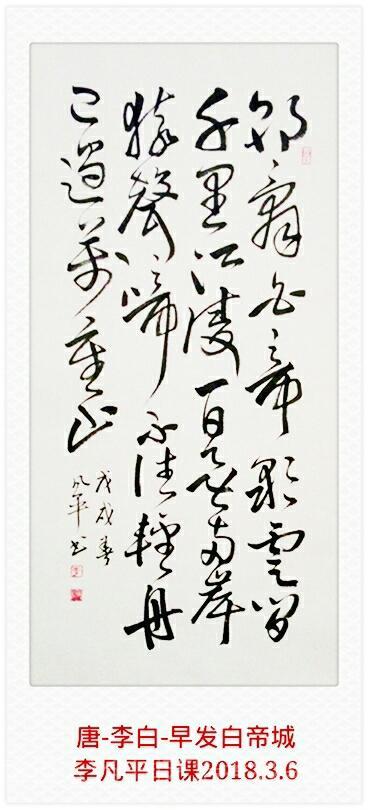 朝辭白帝彩雲間
千里江陵一日還兩岸
猿聲啼不住輕舟
已過萬重山
戊戌春
凡平书
唐-李白-早发白帝城
李凡平日课2018.3.6